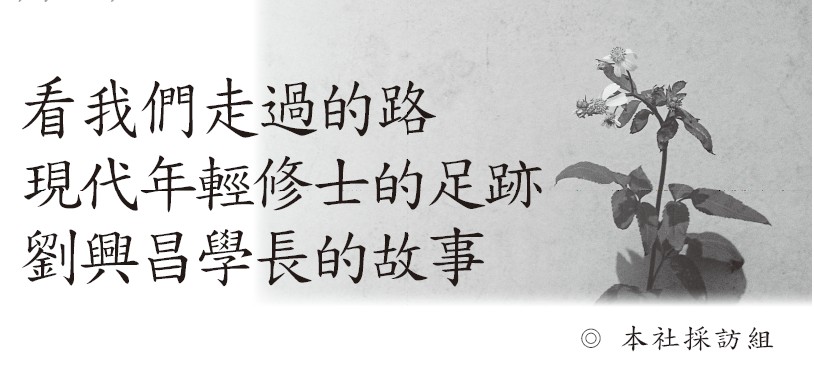 看我們走過的路
現代年輕修士的足跡
劉興昌學長的故事
◎ 本社採訪組